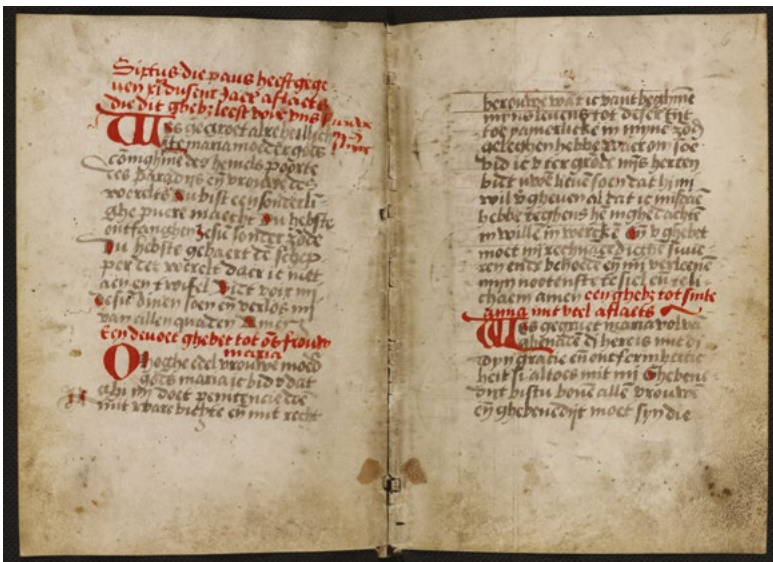 Sixtus die paus heeft gege
uen xi dusent Jaer aflaets
die dit ghebz leest voir ons
Wes gegroet alre heilichs
te maria moeder gods
coninghine des hemels poorte
des paradijs eñ vrouwe des
werelts Du bist een sonderli
ghe puere maecht Du hebste
ontfanghen Jesū sonder zōde
Du hebste gebaert dē schep
per der werelt daer ic niet
aen en twifel Bidt voir mi
Jesū dinen soen eñ verlos mi
van allen quaden Amen
Een deuoet ghebet tot ōs vrouw
maria
O hoghe edel vrouwe moed
gods maria ic bid v dat
ghi mi doet penitencie
mit ware biechte eñ mit recht
berouwe wat ic vant beghine
mijns leuens tot deser tijt
toe iamerlicke in mijne zōd
geleghen hebbe waer om soe
bid ic v ter grōdē mijs herten
bidt uwē lieuē soen dat hi mi
wil vgheuen al dat ic misdaē
hebbe teeghens hē in ghedachtē
in wille in wercke Eñ v ghebet
moet mi rechuaerdighē suue
ren ende behoedē eñ mi verlenē
mijn nootruftē te siel eñ te li
chaem amen een ghebz tot sinte
anna mit veel aflaets
Wes gegruet maria vol vā
ghenadē dī here is mit di
dyn gracie eñ ontfermhertic
heit si altoes mit mi Ghebene
dyt bistu bouē allē vrouwē
eñ ghebenedijt moet syn die